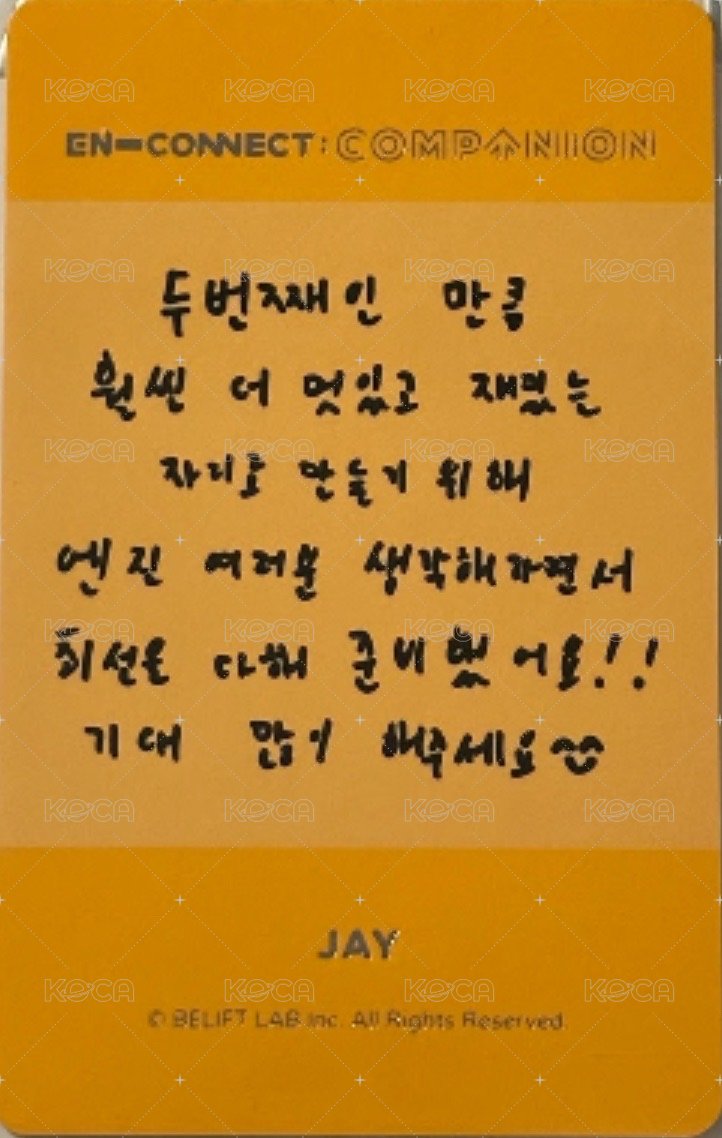 EN-CONNECT: COMPANION
두번째인 만큼
훨씬 더 멋있고 재밌는
자리로 만들기 위해
엔진 여러분 생각해가면서
최선을 다해 준비했어요!!
기대 많이 해주세요^^
JAY
© BELIFT LAB Inc. All Rights Reserved.
KOCA